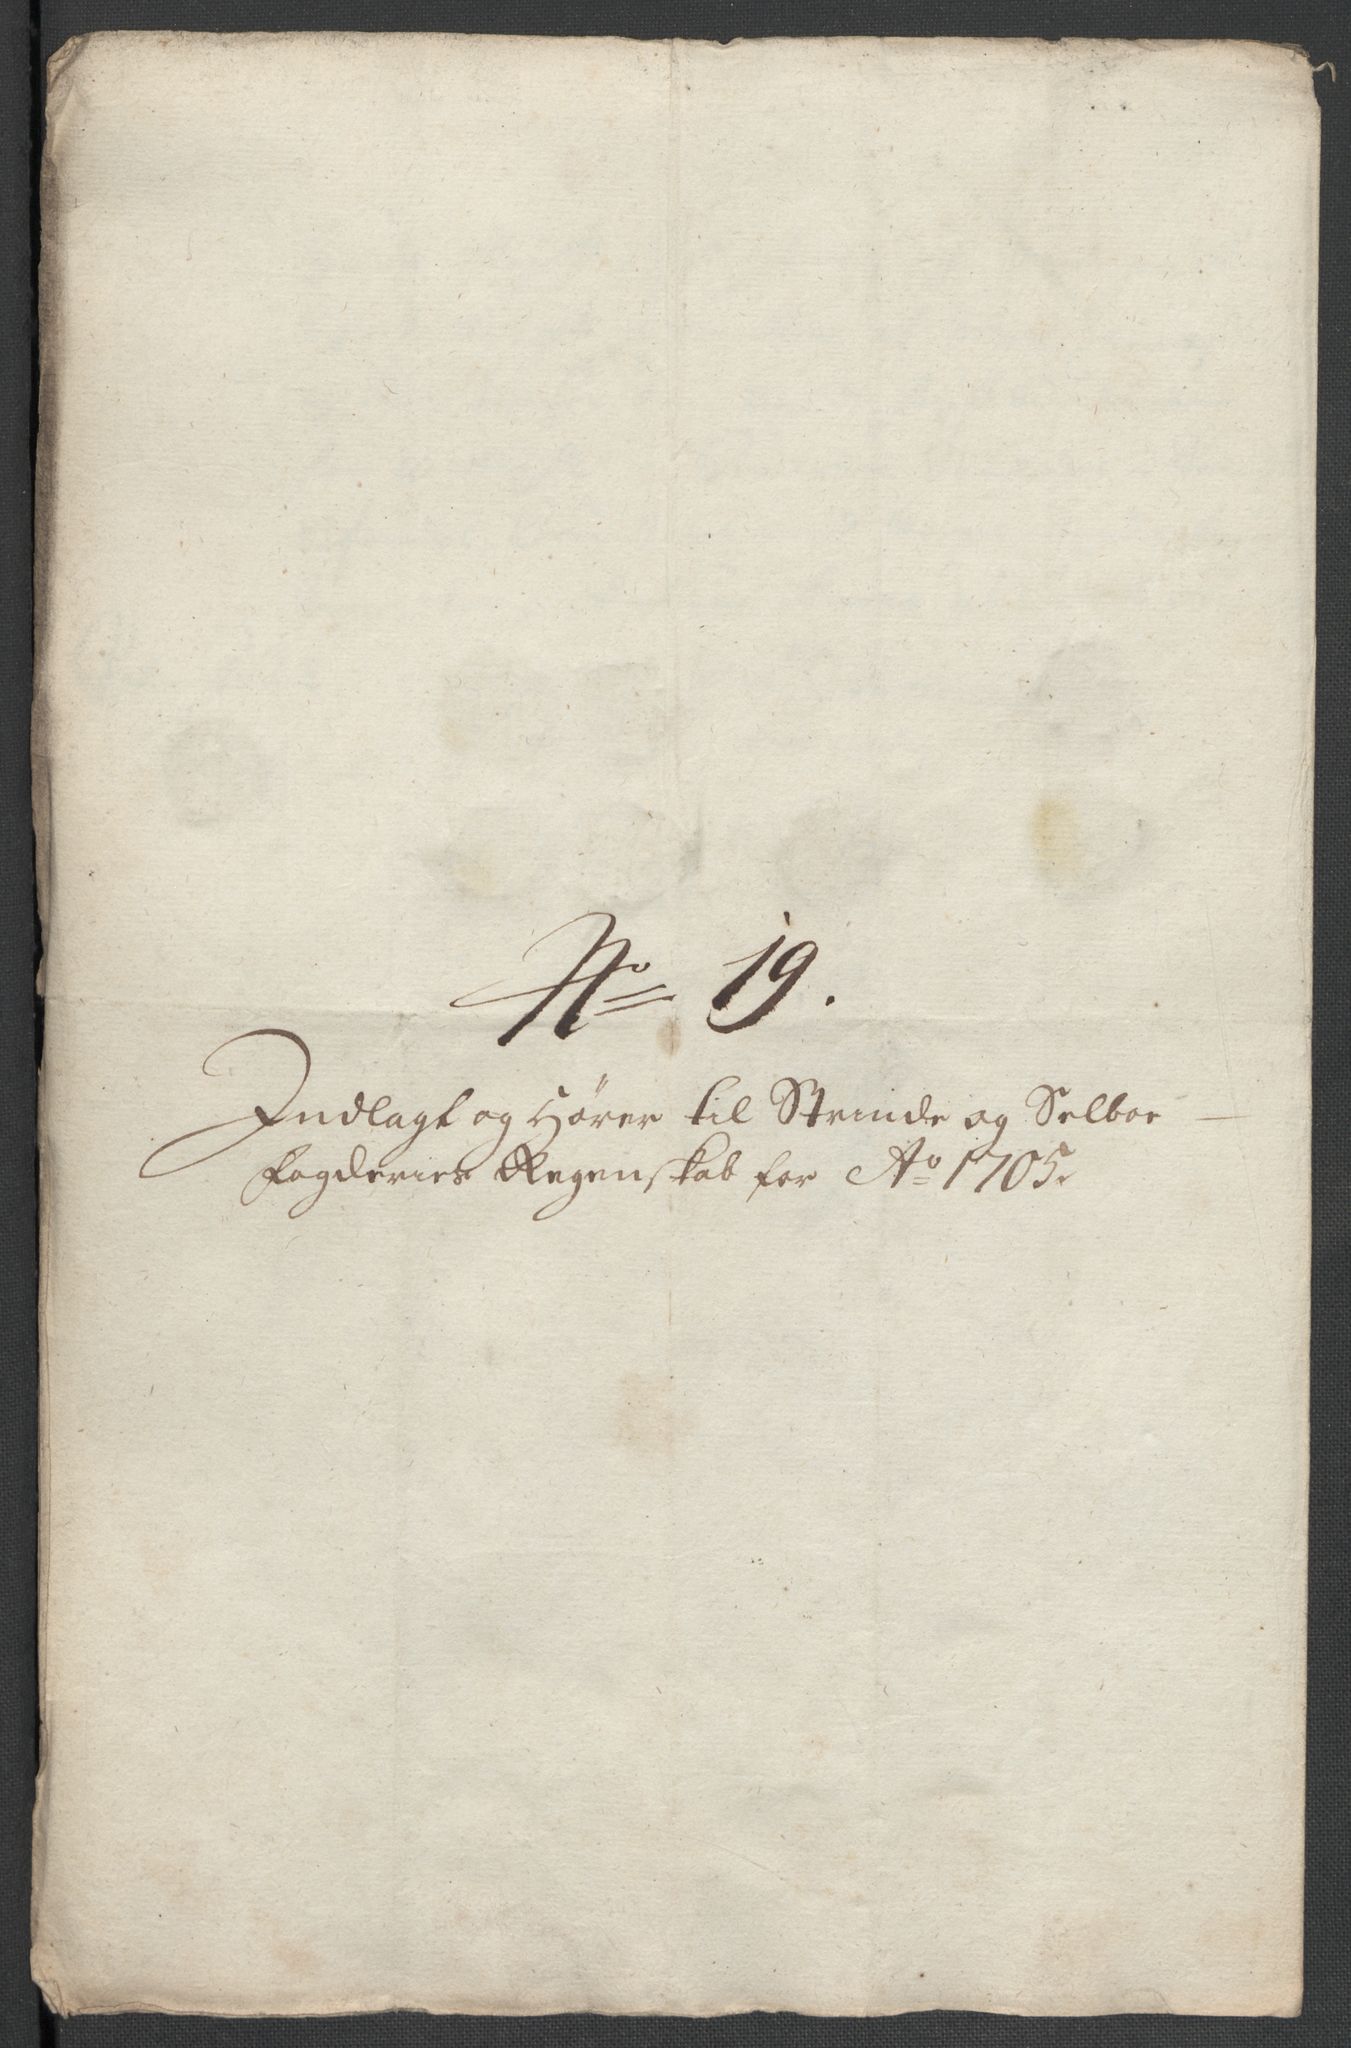 No 19.
Indlagt og Hörer til Strinde og Selboe
fogderies Regenskab for Ao 1705.